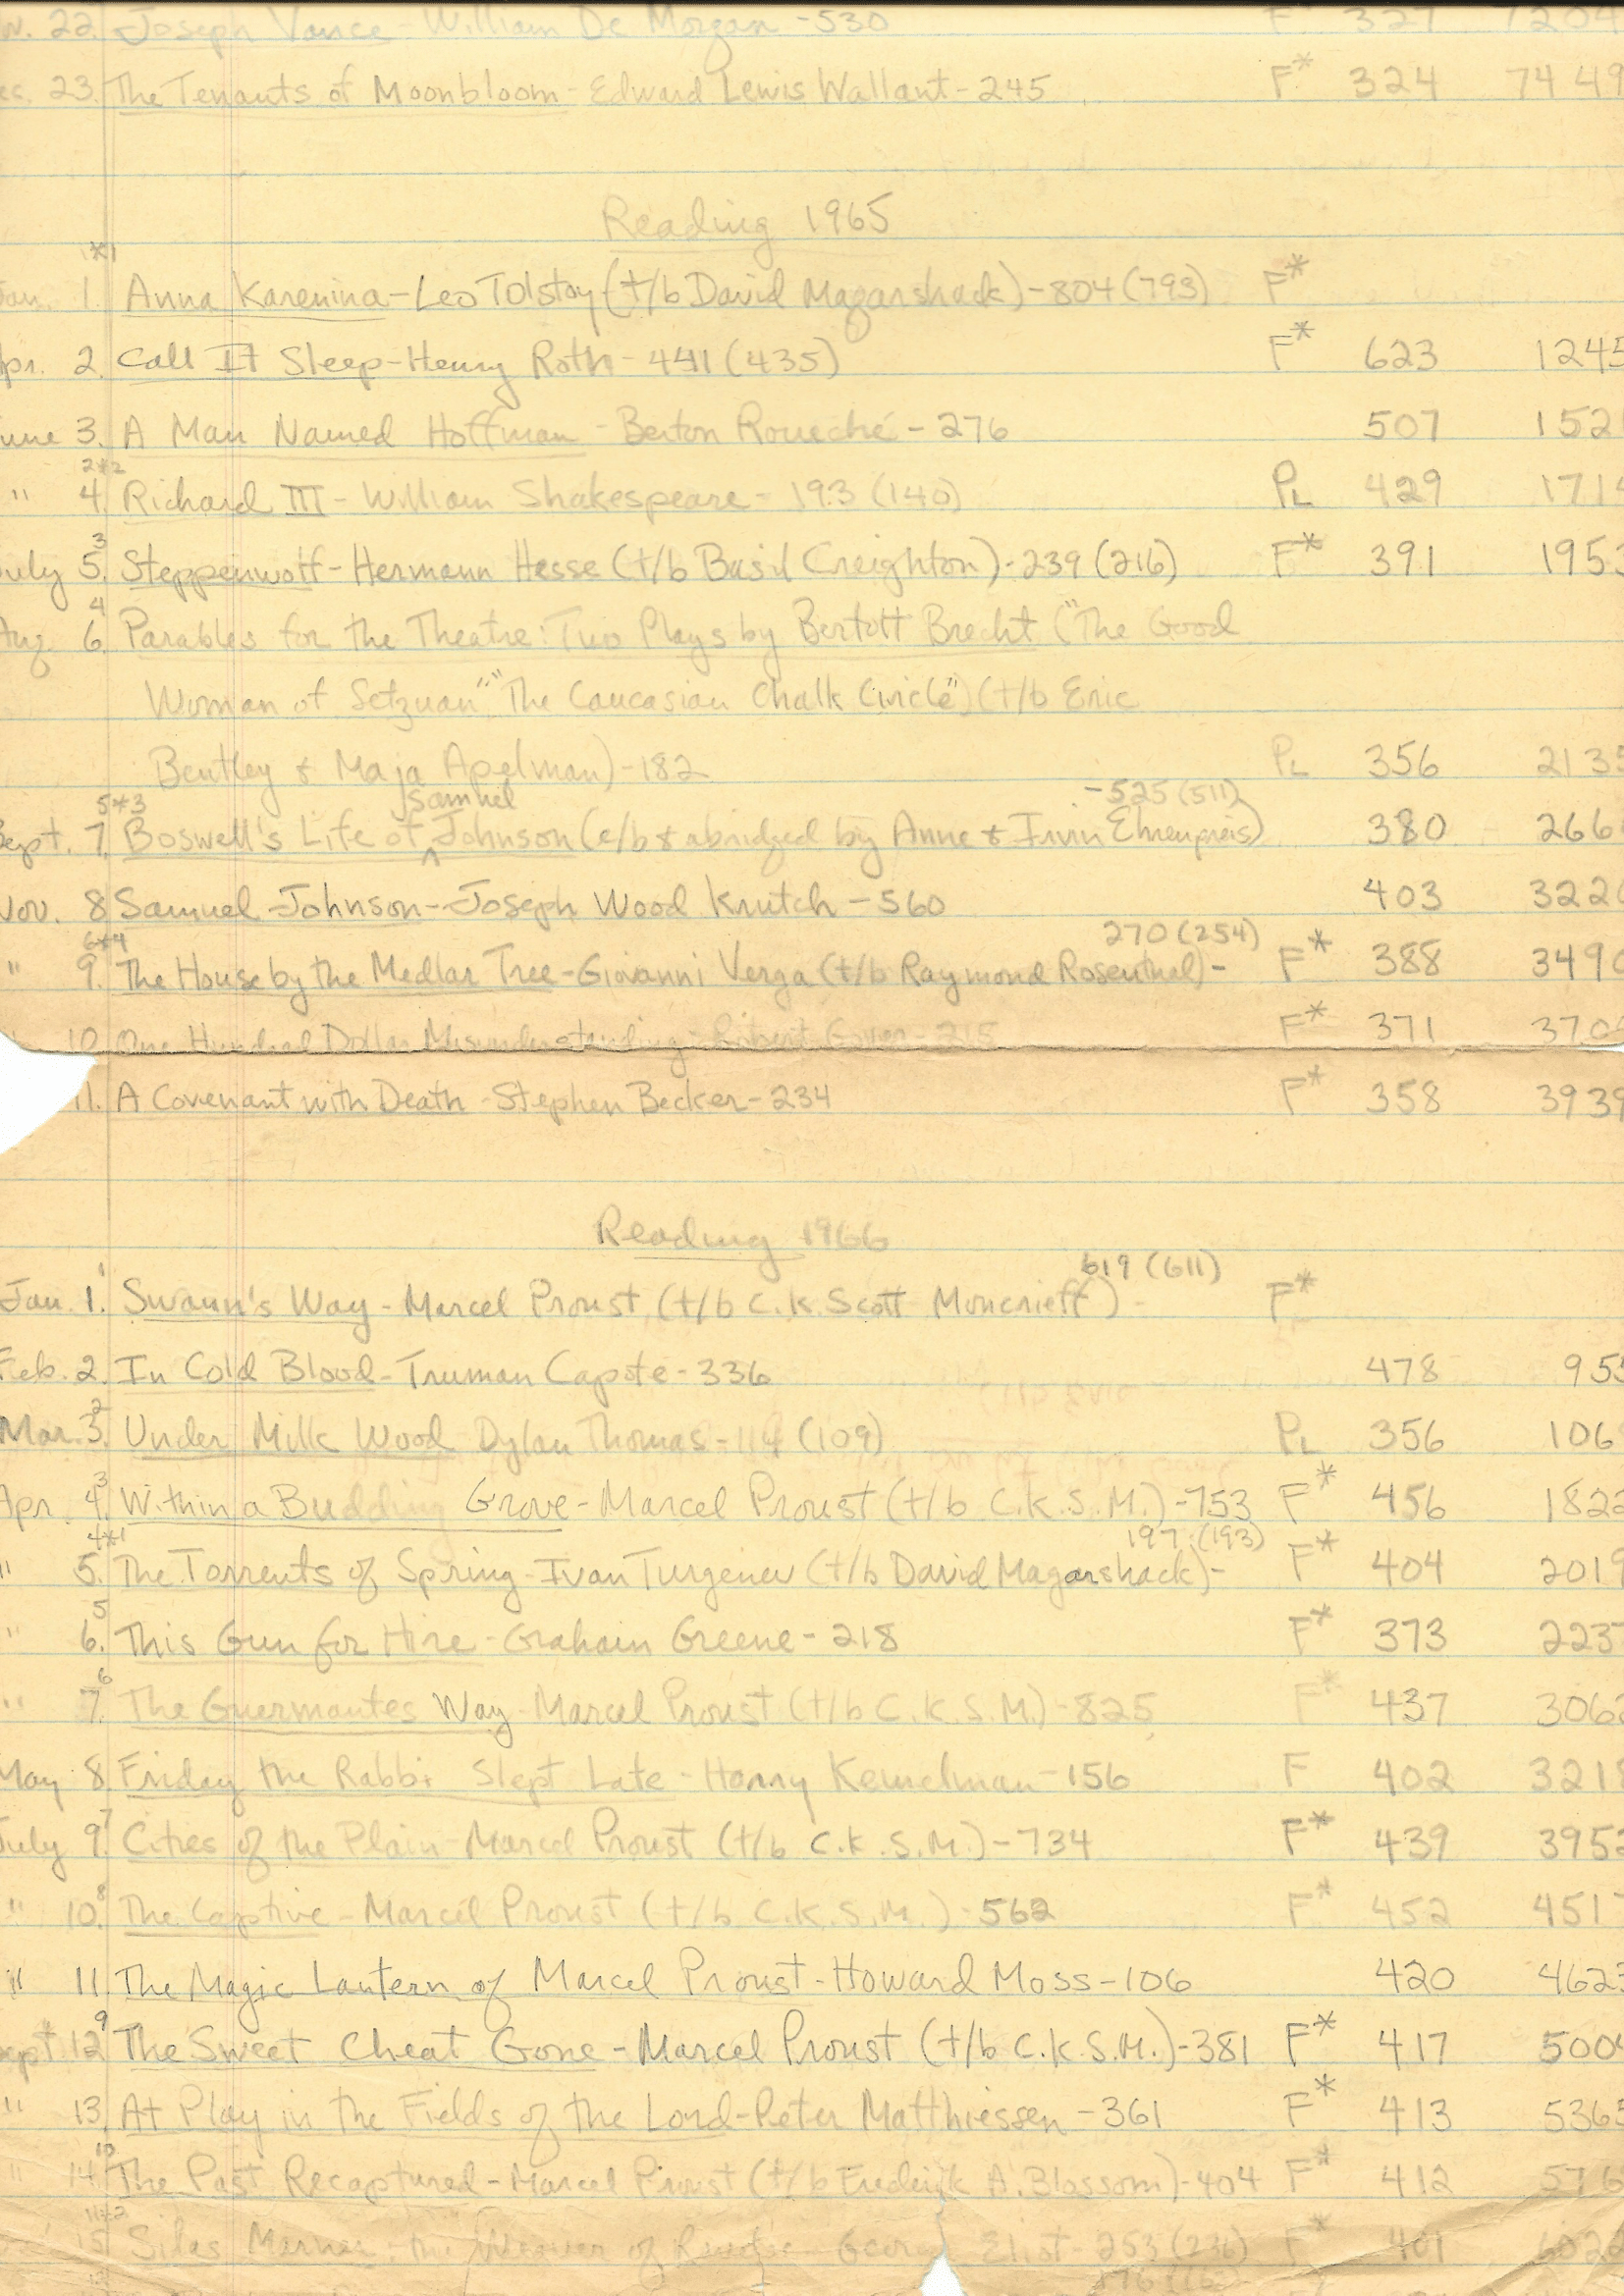 22. Joseph Vance - William De Morgan - 530 F 327 7204
ec. 23. The Tenants of Moonbloom - Edward Lewis Wallant - 245 F* 324 7449
Reading 1965
*1
Jan. 1. Anna Karenina - Leo Tolstoy (t/b David Magarshack) - 804 (793) F*
Apr. 2. Call It Sleep - Henry Roth - 441 (435) F* 623 1245
June 3. A Man Named Hoffman - Berton Roueché - 276 507 152
2*2
" 4. Richard III - William Shakespeare - 193 (140) PL 429 171
3
July 5. Steppenwolf - Hermann Hesse (t/b Basil Creighton) - 239 (216) F* 391 195
4
Aug. 6. Parables for the Theatre: Two Plays by Bertolt Brecht ("The Good
Woman of Setzuan" "The Caucasian Chalk Circle") (t/b Eric
Bentley & Maja Apelman) - 182 PL 356 2135
5*3 Samuel - 525 (511)
Sept. 7. Boswell's Life of ^ Johnson (e/b & abridged by Anne & Irvin Ehrenpreis) 380 266
Nov. 8 Samuel Johnson - Joseph Wood Krutch - 560 403 322
6*4 270 (254)
" 9. The House by the Medlar Tree - Giovanni Verga (t/b Raymond Rosenthal) - F* 388 349
10. One Hundred Dollar Misunderstanding - Robert Gover - 215 F* 371 370
11. A Covenant with Death - Stephen Becker - 234 F* 358 3939
Reading 1966
1 619 (611)
Jan. 1. Swann's Way - Marcel Proust (t/b C.K. Scott Moncrieff) - F*
Feb. 2. In Cold Blood - Truman Capote - 336 478 955
2
Mar. 3. Under Milk Wood - Dylan Thomas - 114 (109) PL 356 106
3
Apr. 4. Within a Budding Grove - Marcel Proust (t/b C.K.S.M.) - 753 F* 456 182
4*1 197 (193)
" 5. The Torrents of Spring - Ivan Turgenev (t/b David Magarshack) - F* 404 2019
5
" 6. This Gun for Hire - Graham Greene - 218 F* 373 223
6
" 7. The Guermantes Way - Marcel Proust (t/b C.K.S.M.) - 825 F* 437 306
May 8. Friday the Rabbi Slept Late - Harry Kemelman - 156 F 402 3218
7
July 9. Cities of the Plain - Marcel Proust (t/b C.K.S.M.) - 734 F* 439 395
8
" 10. The Captive - Marcel Proust (t/b C.K.S.M.) - 562 F* 452 451
" 11 The Magic Lantern of Marcel Proust - Howard Moss - 106 420 462
9
Sept. 12 The Sweet Cheat Gone - Marcel Proust (t/b C.K.S.M.) - 381 F* 417 500
" 13. At Play in the Fields of the Lord - Peter Matthiessen - 361 F* 413 5365
10
" 14. The Past Recaptured - Marcel Proust (t/b Frederick A. Blossom) - 404 F* 412 576
11*2
15 Silas Marner: the Weaver of Raveloe - George Eliot - 253 (236) F* 401 602